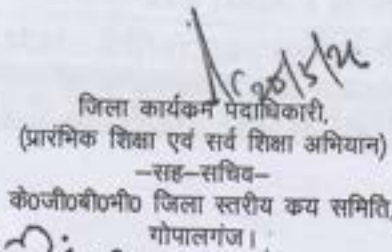 जिला कार्यकम पदाधिकारी,
(प्रारंभिक शिक्षा एवं सर्व शिक्षा अभियान)
–सह–सचिव–
के0जी0बी0भी0 जिला स्तरीय कय समिति,
गोपालगंज।